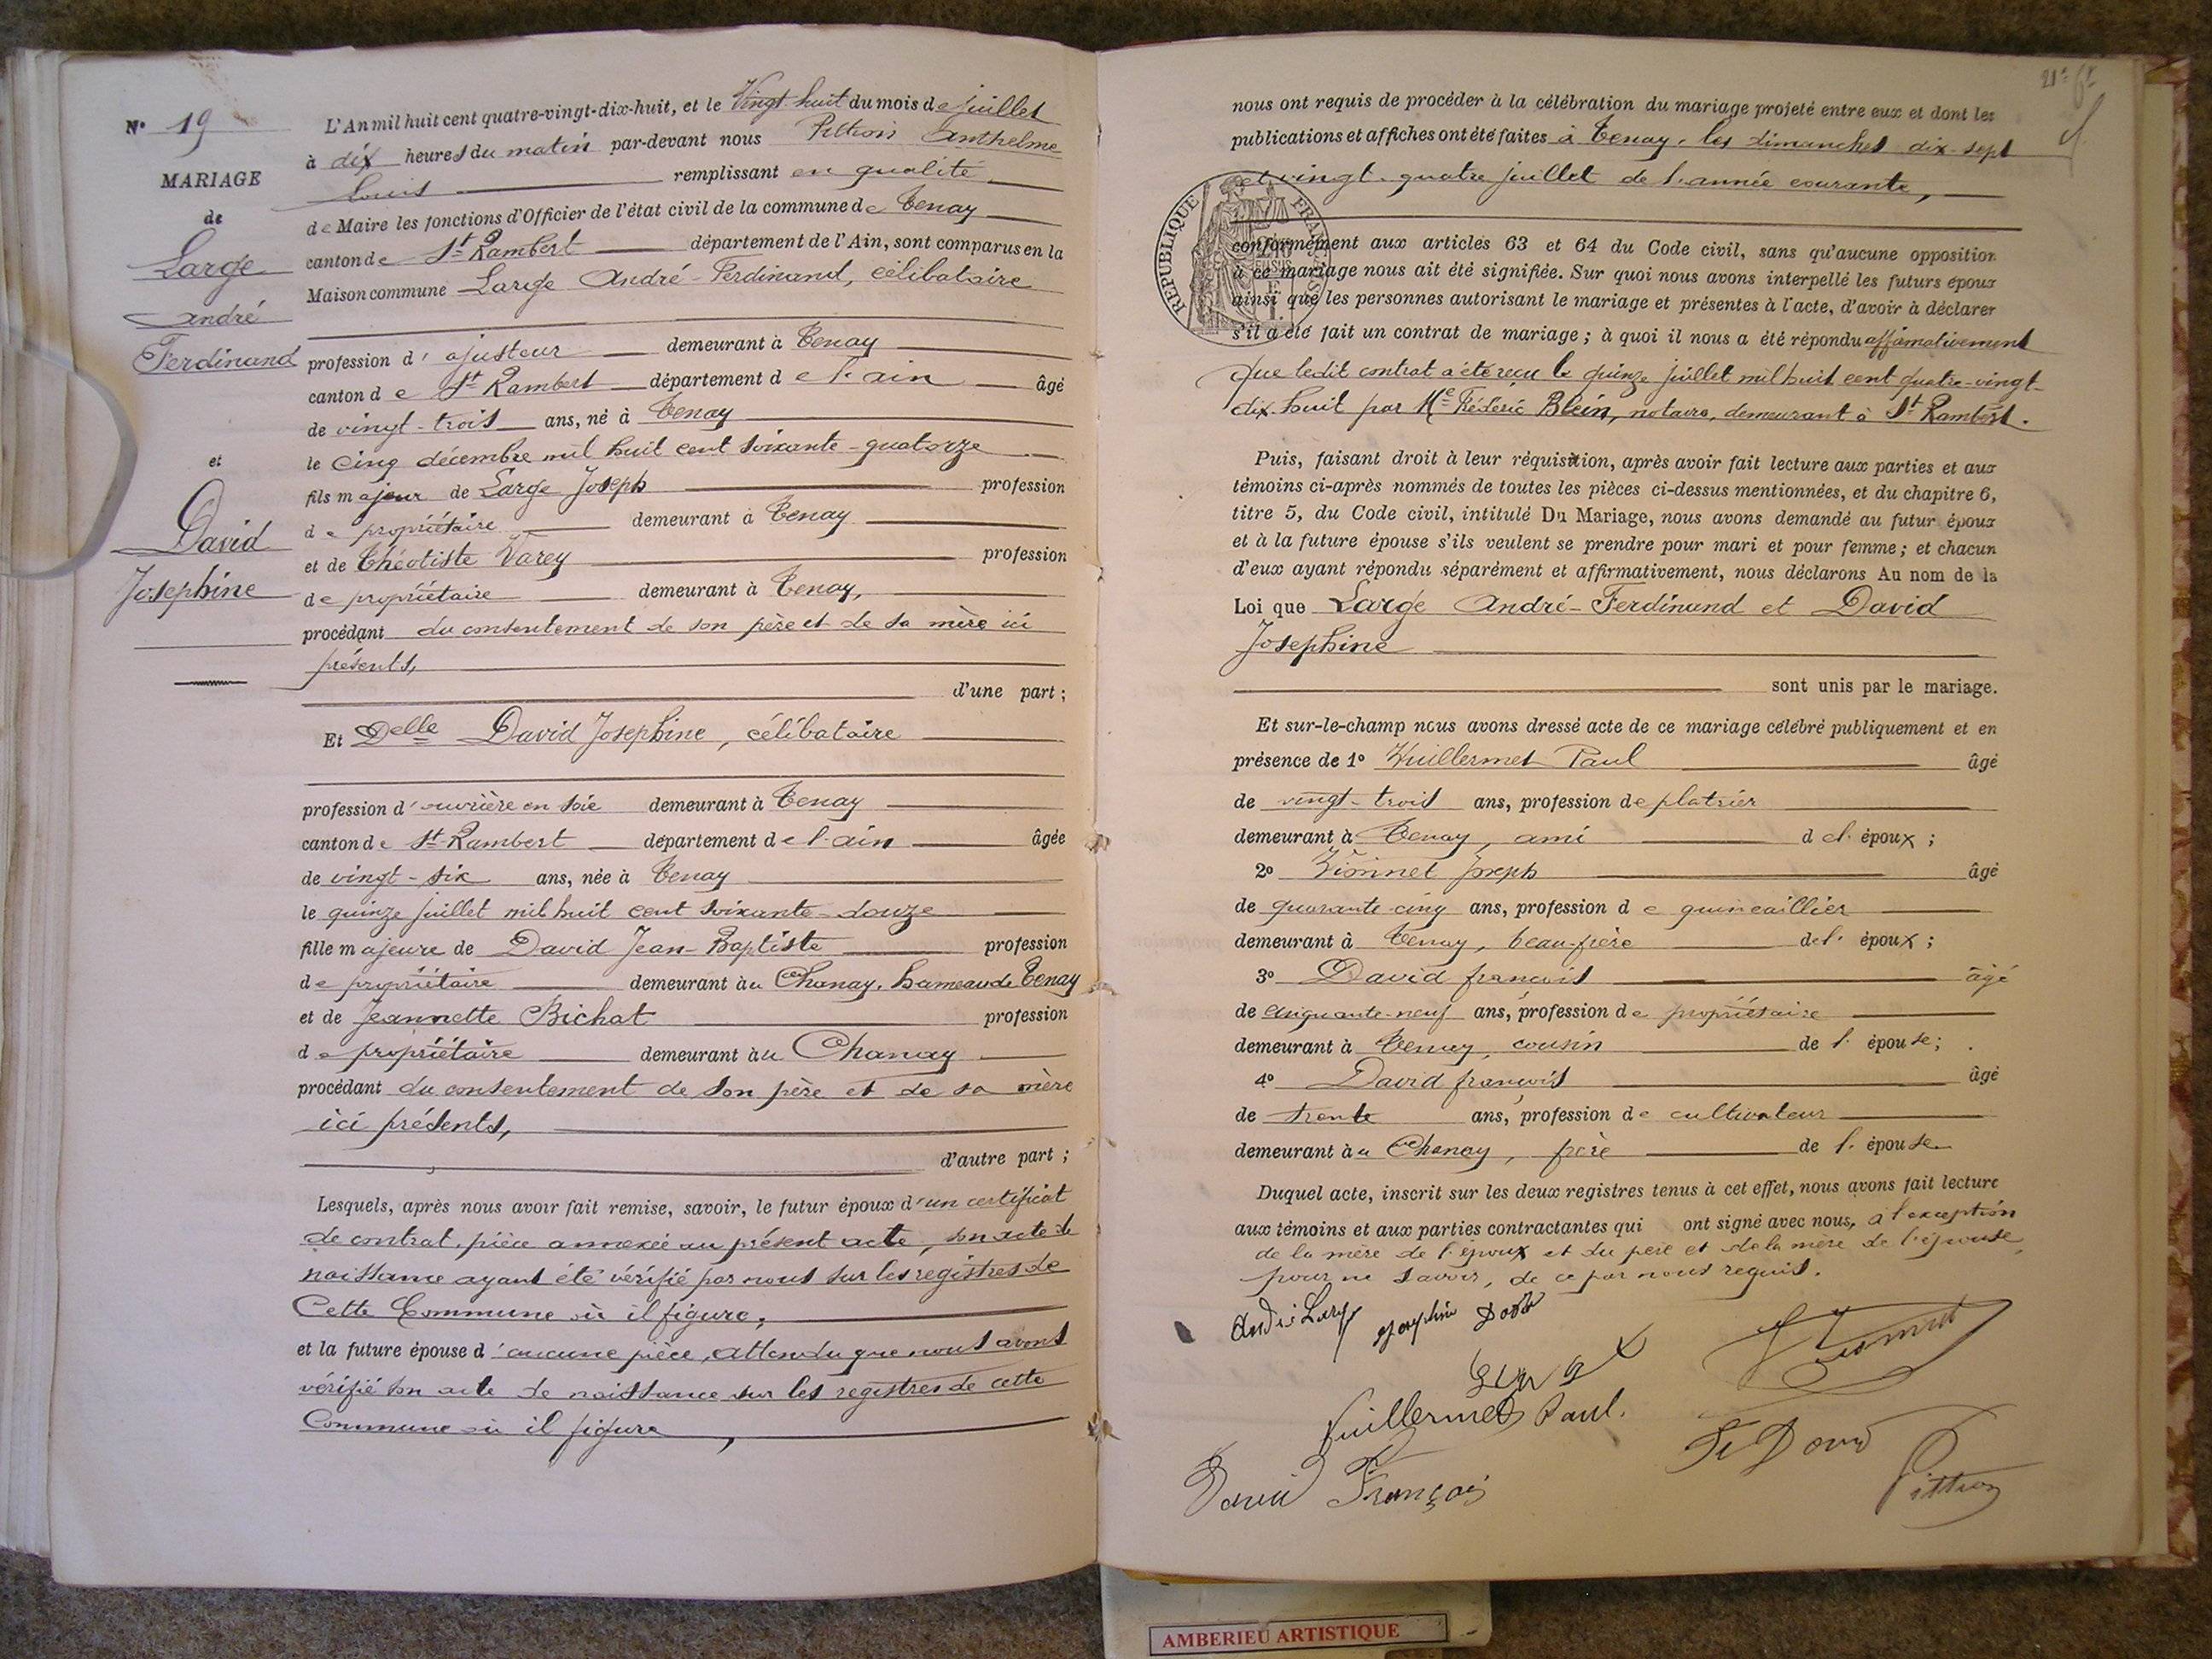 N° 19
MARIAGE
de
Large
André
Ferdinand
et
David
Josephine
L'An mil huit cent quatre-vingt-dix-huit, et le Vingt-huit du mois de juillet
à dix heures du matin par-devant nous Pittion Anthelme
Louis remplissant en qualité
de Maire les fonctions d'Officier de l'état civil de la commune de Tenay
canton de St Rambert département de l'Ain, sont comparus en la
Maison commune Large André-Ferdinand, célibataire
profession d'ajusteur demeurant à Tenay
canton de St Rambert département de l'ain âgé
de vingt-trois ans, né à Tenay
le cinq décembre mil huit cent soixante-quatorze
fils majeur de Large Joseph profession
de propriétaire demeurant à Tenay
et de Théotiste Varey profession
de propriétaire demeurant à Tenay,
procédant du consentement de son père et de sa mère ici
présents,
d'une part;
Et Delle David Josephine, célibataire
profession d'ouvrière en soie demeurant à Tenay
canton de St-Rambert département de l'ain âgée
de vingt-six ans, née à Tenay
le quinze juillet mil huit cent soixante-douze
fille majeure de David Jean-Baptiste profession
de propriétaire demeurant au Chanay, hameau de Tenay
et de Jeannette Bichat profession
de propriétaire demeurant au Chanay
procédant du consentement de son père et de sa mère
ici présents,
d'autre part;
Lesquels, après nous avoir fait remise, savoir, le futur époux d'un certificat
de contrat, pièce annexée au présent acte, son acte de
naissance ayant été vérifié par nous sur les registres de
Cette Commune où il figure;
et la future épouse d'aucune pièce, attendu que nous avons
vérifié son acte de naissance sur les registres de cette
Commune où il figure,
nous ont requis de procéder à la célébration du mariage projeté entre eux et dont les
publications et affiches ont été faites à Tenay, les dimanches dix-sept
et vingt-quatre juillet de l'année courante,
REPUBLIQUE
conformément aux articles 63 et 64 du Code civil, sans qu'aucune opposition
à ce mariage nous ait été signifiée. Sur quoi nous avons interpellé les futurs époux
ainsi que les personnes autorisant le mariage et présentes à l'acte, d'avoir à déclarer
s'il a été fait un contrat de mariage; à quoi il nous a été répondu affirmativement
que ledit contrat a été reçu le quinze juillet mil huit cent quatre-vingt-
dix-huit par Me Frédéric Blein, notaire, demeurant à St Rambert.
Puis, faisant droit à leur réquisition, après avoir fait lecture aux parties et aux
témoins ci-après nommés de toutes les pièces ci-dessus mentionnées, et du chapitre 6,
titre 5, du Code civil, intitulé Du Mariage, nous avons demandé au futur époux
et à la future épouse s'ils veulent se prendre pour mari et pour femme; et chacun
d'eux ayant répondu séparément et affirmativement, nous déclarons Au nom de la
Loi que Large André-Ferdinand et David
Josephine
sont unis par le mariage.
Et sur-le-champ nous avons dressé acte de ce mariage célébré publiquement et en
présence de 1° Vuillermet Paul âgé
de vingt-trois ans, profession de platrier
demeurant à Tenay, ami de l'époux;
2° Vionnet Joseph âgé
de quarante-cinq ans, profession de quincaillier
demeurant à Tenay, beau-frère de l'époux;
3° David françois âgé
de cinquante-neuf ans, profession de propriétaire
demeurant à Tenay, cousin de l'épouse;
4° David françois âgé
de trente ans, profession de cultivateur
demeurant au Chanay, frère de l'épouse
Duquel acte, inscrit sur les deux registres tenus à cet effet, nous avons fait lecture
aux témoins et aux parties contractantes qui ont signé avec nous, à l'exception
de la mère de l'époux et du père et de la mère de l'épouse,
pour ne savoir, de ce par nous requis.
André Large
Vuillermet Paul.
David François
Pittion
AMBERIEU ARTISTIQUE